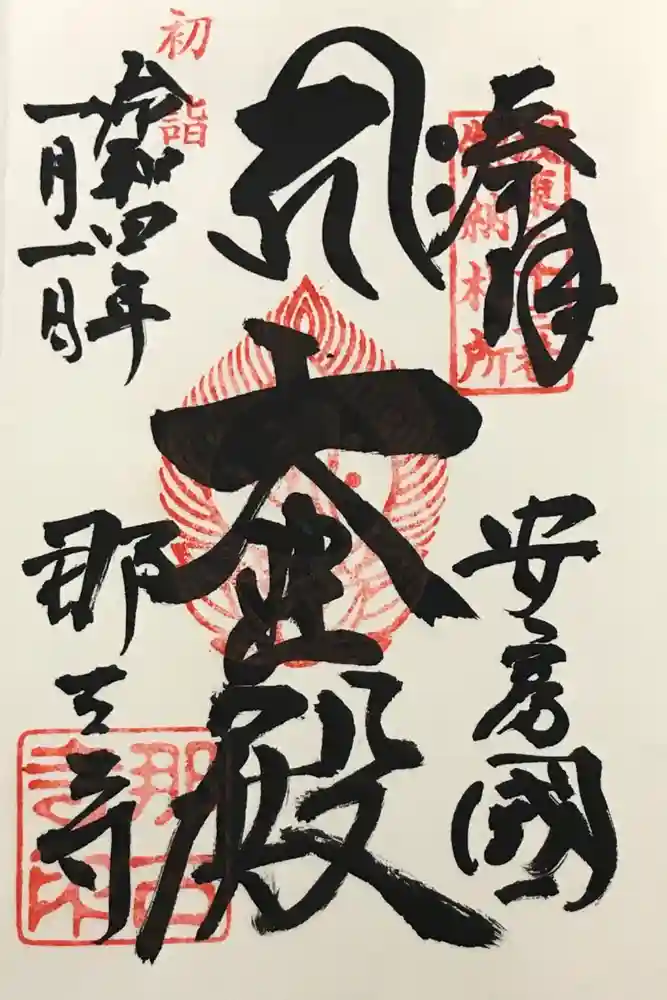 奉拝
安房國
大悲殿
初詣
令和四年
一月一日
那古寺
那古
寺印